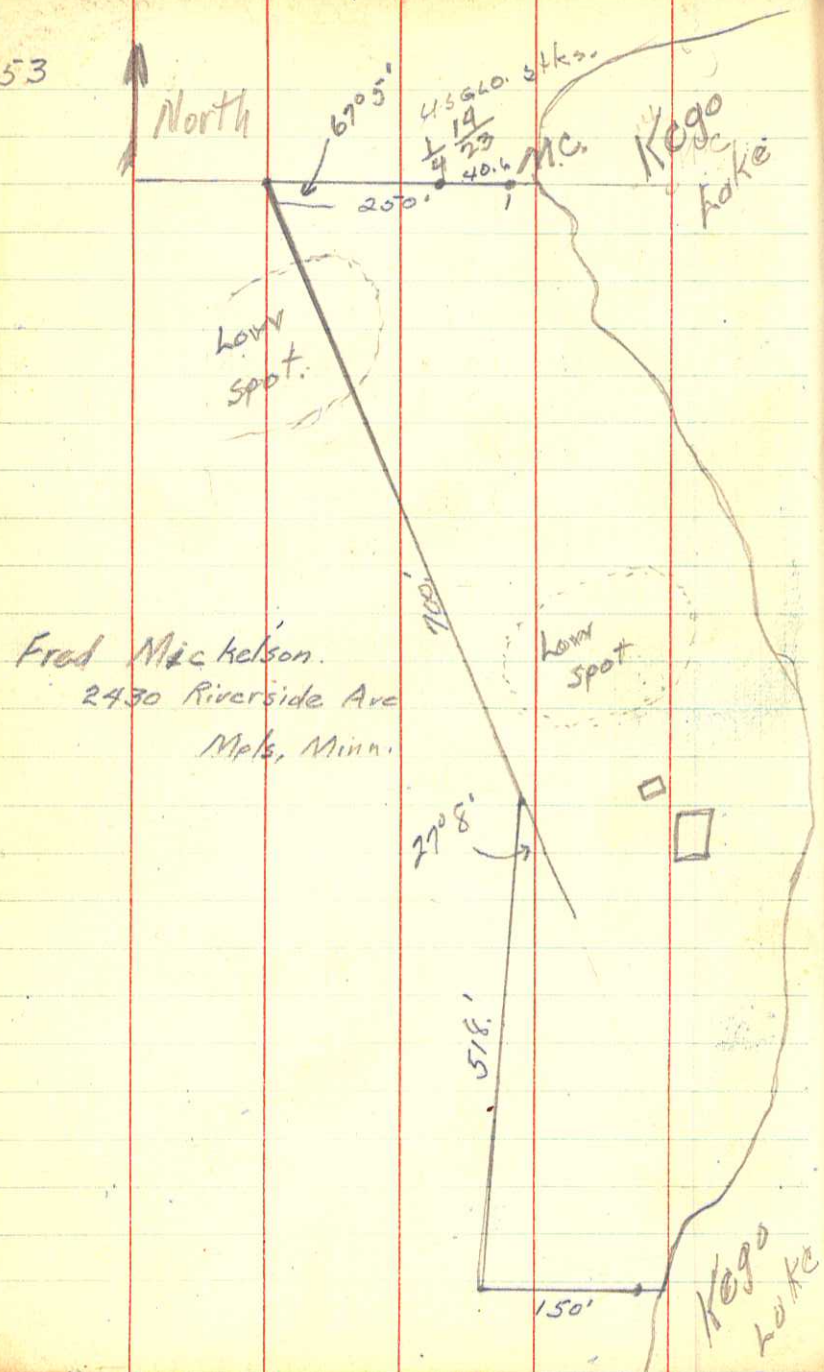 53
North
67° 5'
U.S.G.L.O. stks.
1/4 14/23
40.6
M.C.
Kego
Lake
250'
Low
spot.
700'
Low
spot
Fred Mickelson.
2430 Riverside Ave
Mpls, Minn.
27° 8'
518.'
150'
Kego
Lake